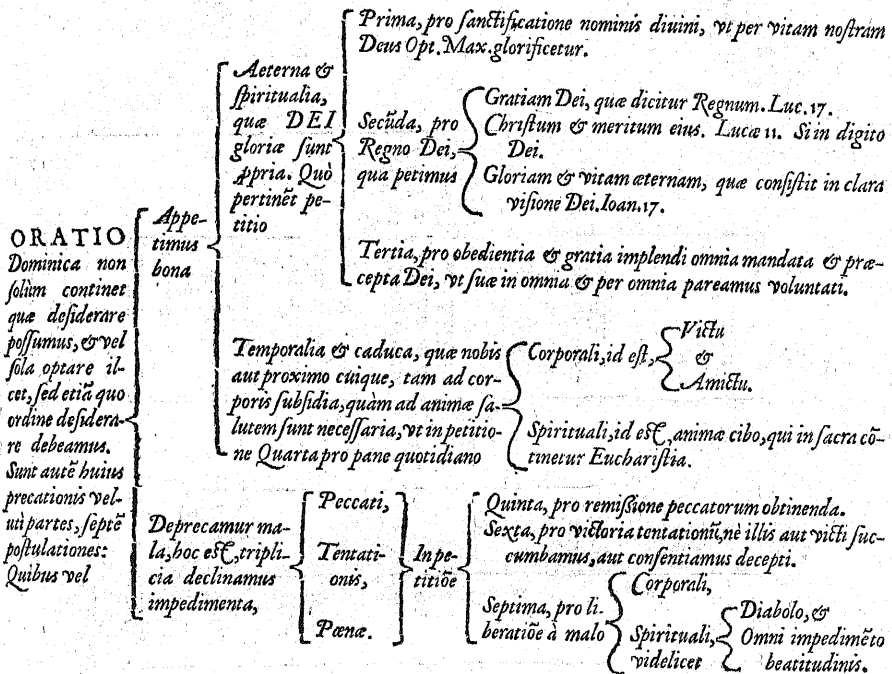 ORATIO
Dominica non
ſolùm continet
quæ deſiderare
poſſumus, & vel
ſola optare il-
cet, ſed etiã quo
ordine deſidera-
re debeamus.
Sunt autẽ huius
precationis vel-
uti partes, ſeptẽ
poſtulationes:
Quibus vel
Appe-
timus
bona
Aeterna &
ſpiritualia,
quæ DEI
gloriæ ſunt
ꝓpria. Quò
pertinẽt pe-
titio
Prima, pro ſanctificatione nominis diuini, vt per vitam noſtram
Deus Opt. Max. glorificetur.
Secũda, pro
Regno Dei,
qua petimus
Gratiam Dei, quæ dicitur Regnum. Luc. 17.
Chriſtum & meritum eius. Lucæ 11. Si in digito
Dei.
Gloriam & vitam æternam, quæ conſiſtit in clara
viſione Dei. Ioan. 17.
Tertia, pro obedientia & gratia implendi omnia mandata & præ-
cepta Dei, vt ſuæ in omnia & per omnia pareamus voluntati.
Temporalia & caduca, quæ nobis
aut proximo cuique, tam ad cor-
poris ſubſidia, quàm ad animæ ſa-
lutem ſunt neceſſaria, vt in petitio-
ne Quarta pro pane quotidiano
Corporali, id eſt,
Victu
&
Amictu.
Spirituali, id eſt, animæ cibo, qui in ſacra cõ-
tinetur Euchariſtia.
Deprecamur ma-
la, hoc eſt, tripli-
cia declinamus
impedimenta,
Peccati,
Tentati-
onis,
Pœnæ.
In pe-
titiõe
Quinta, pro remiſſione peccatorum obtinenda.
Sexta, pro victoria tentationũ, nè illis aut victi ſuc-
cumbamus, aut conſentiamus decepti.
Septima, pro li-
beratiõe à malo
Corporali,
Spirituali,
videlicet
Diabolo, &
Omni impedimẽto
beatitudinis.